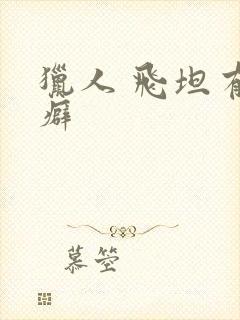 獵人 飛坦有
癖
慕箜